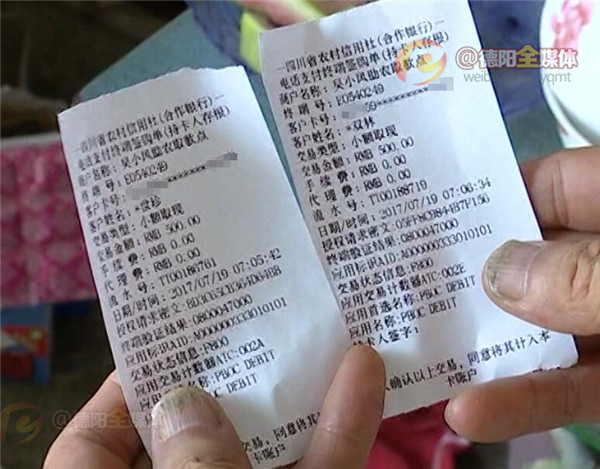 一四川省农村信用社(合作银行)一
电话支付终端签购单(持卡人存根)
商户名称: 吴小风助农取款点
终端号: E0540249
客户卡号:
客户姓名: *发珍
交易类型: 小额取现
交易金额: RMB 500.00
手续费: RMB 0.00
代理费: RMB 0.00
流水号: TT00188761
日期/时间: 2017/07/19 07:05:42
授权请求密文:
终端验证结果: 0800047000
应用标识AID: A000000333010101
交易状态信息: F800
应用交易计数器ATC: 002A
应用首选名称: PBOC DEBIT
应用名称: PBOC DEBIT
交易, 同意将其
卡账户
一四川省农村信用社(合作银行)一
电话支付终端签购单(持卡人存根)
商户名称: 吴小风助农取款点
终端号: E0540249
客户卡号:
客户姓名: *双林
交易类型: 小额取现
交易金额: RMB 500.00
手续费: RMB 0.00
代理费: RMB 0.00
流水号: TT00188719
日期/时间: 2017/07/19 07:06:34
授权请求密文: 05FF8CB84B7F156
终端验证结果: 0800047000
应用标识AID: A000000333010101
交易状态信息: F800
应用交易计数器ATC: 002E
应用首选名称: PBOC DEBIT
应用名称: PBOC DEBIT
持卡人签字:
人确认以上交易, 同意将其计入本
卡账户
@德阳全媒体
@德阳全媒体